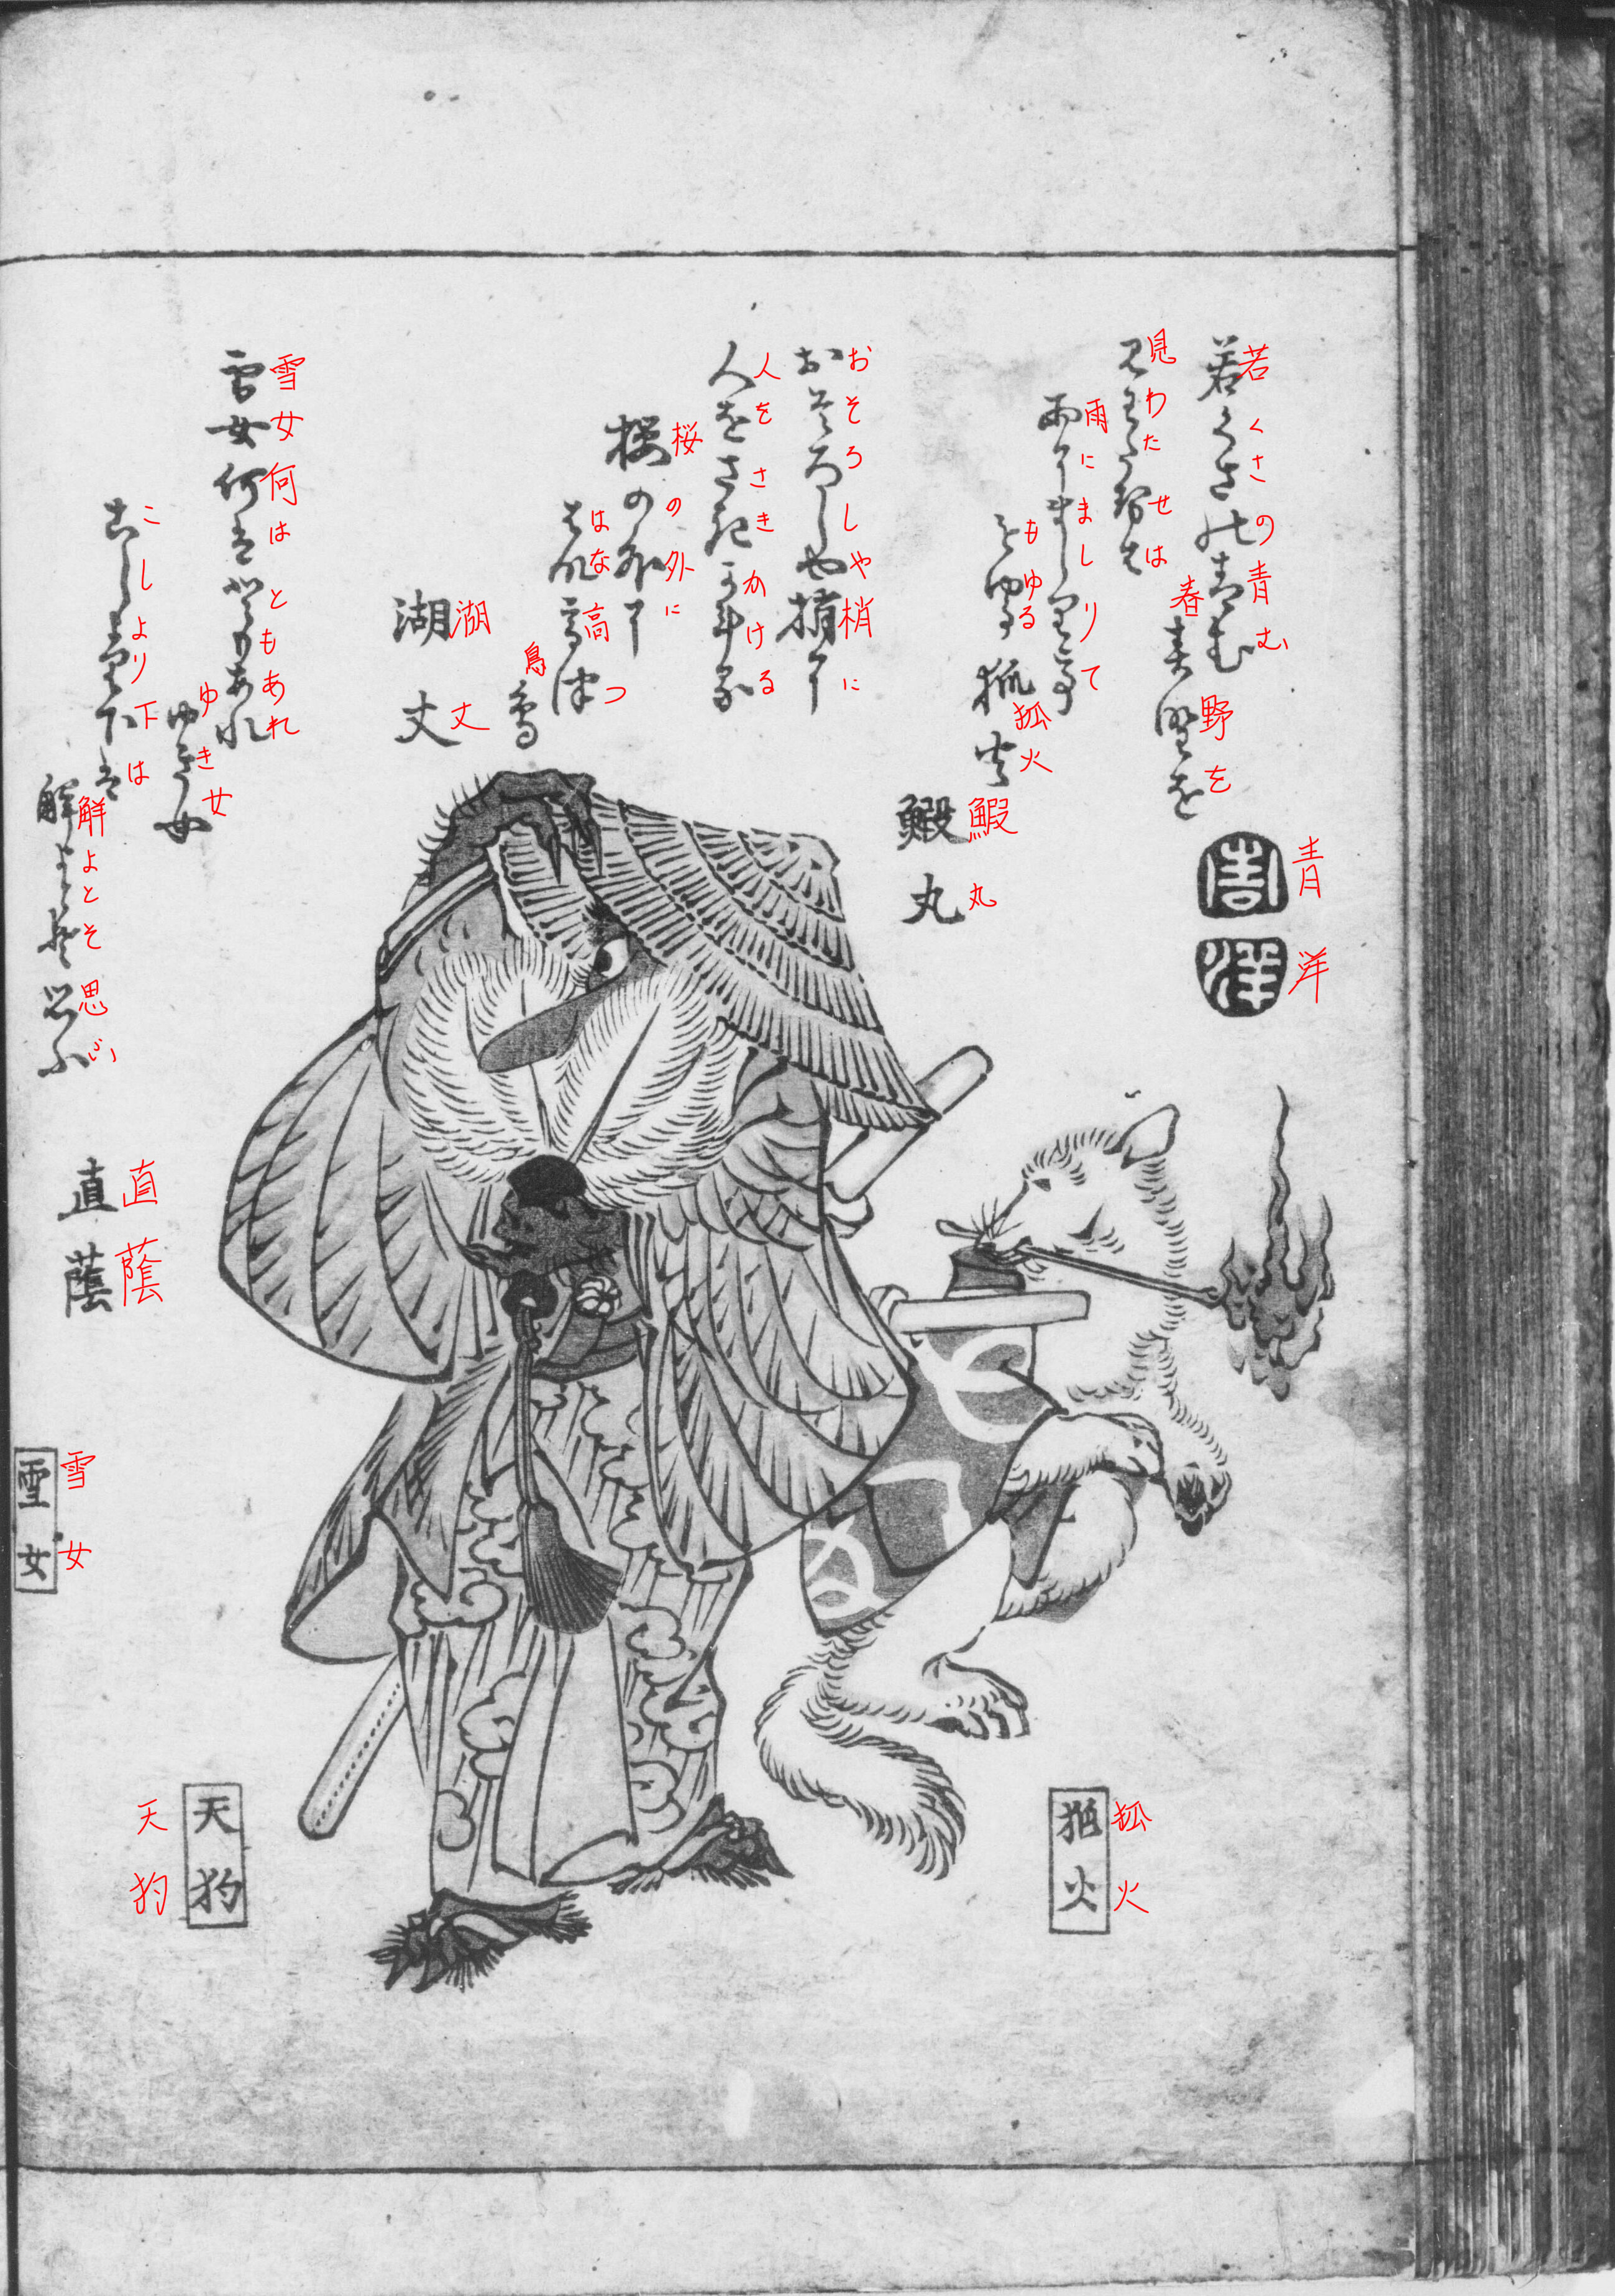 若くさの青む
春野を
見わたせは
雨にましりて
もゆる狐火
青洋
鰕丸
おそろしや梢に
人をさきかける
桜の外に
はな高つ
鳥
湖丈
雪女何はともあれ
ゆき女
こしより下は
解よとそ思ふ
直蔭
狐火
天狗
雪女